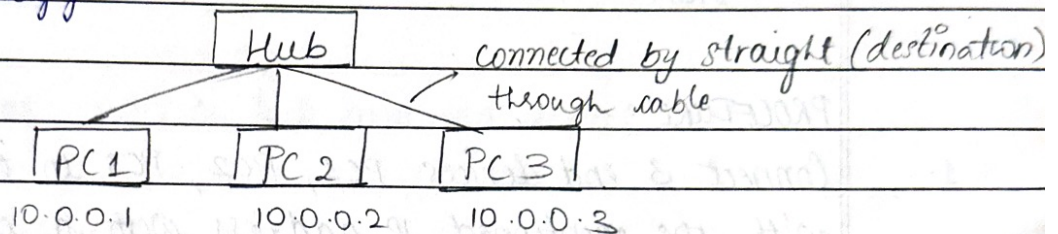 Hub
connected by straight (destination)
through cable
PC1 PC 2 PC 3
10.0.0.1 10.0.0.2 10.0.0.3